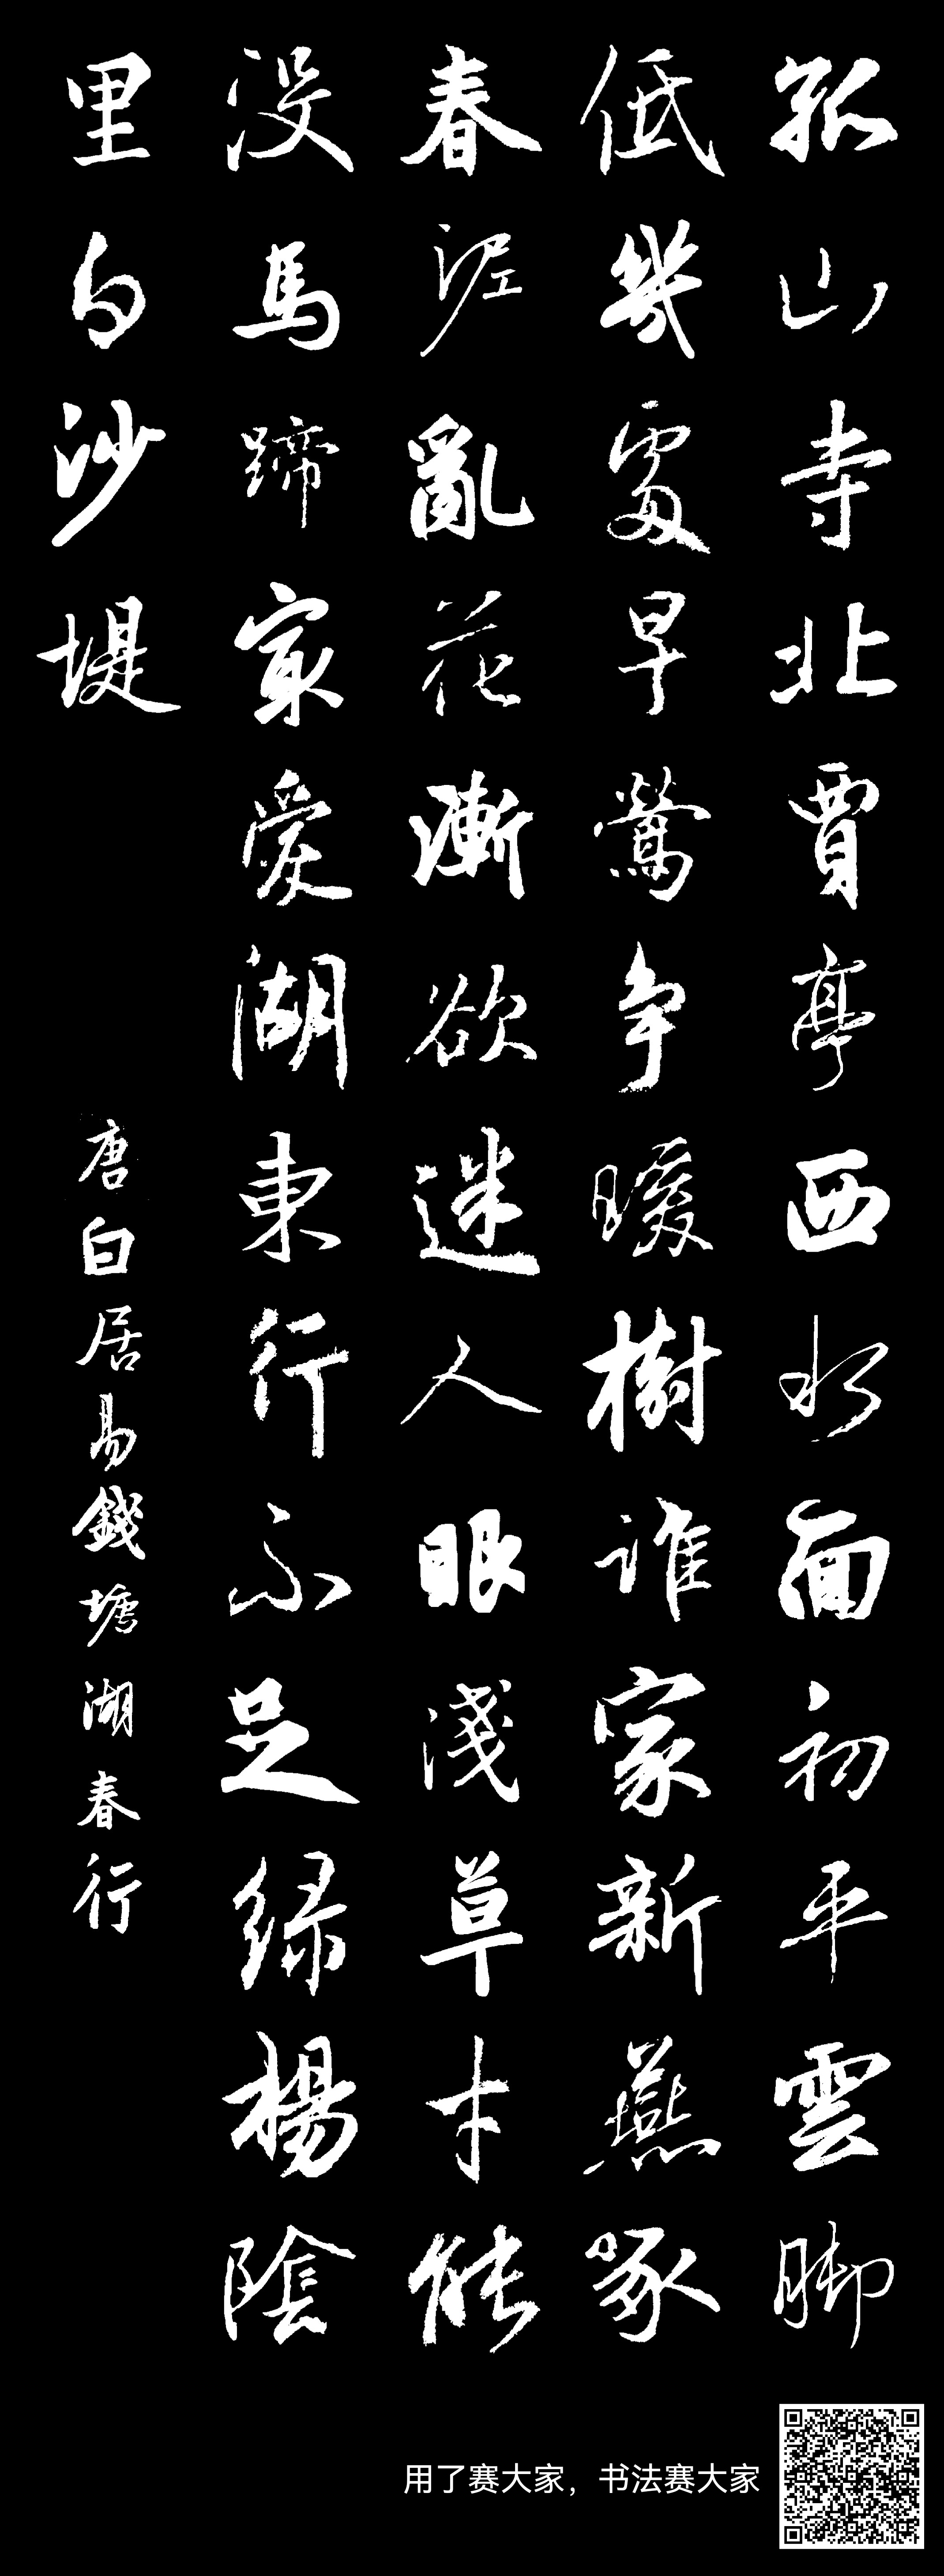 孤山寺北賈亭西水面初平雲脚
低幾處早鶯争暖樹誰家新燕啄
春泥亂花漸欲迷人眼淺草才能
没馬蹄最愛湖東行不足緑楊陰
里白沙堤
唐白居易錢塘湖春行
用了赛大家，书法赛大家